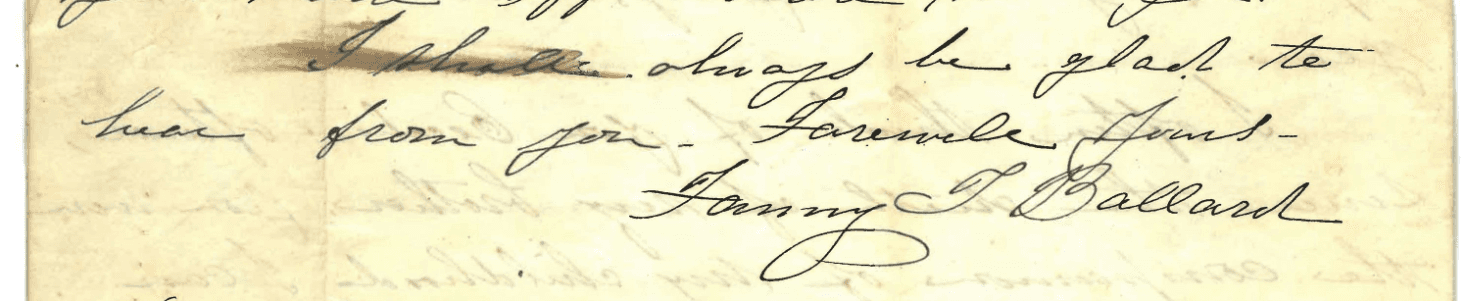 I shall always be glad to
hear from you - Farewell Yours -
Fanny T Ballard